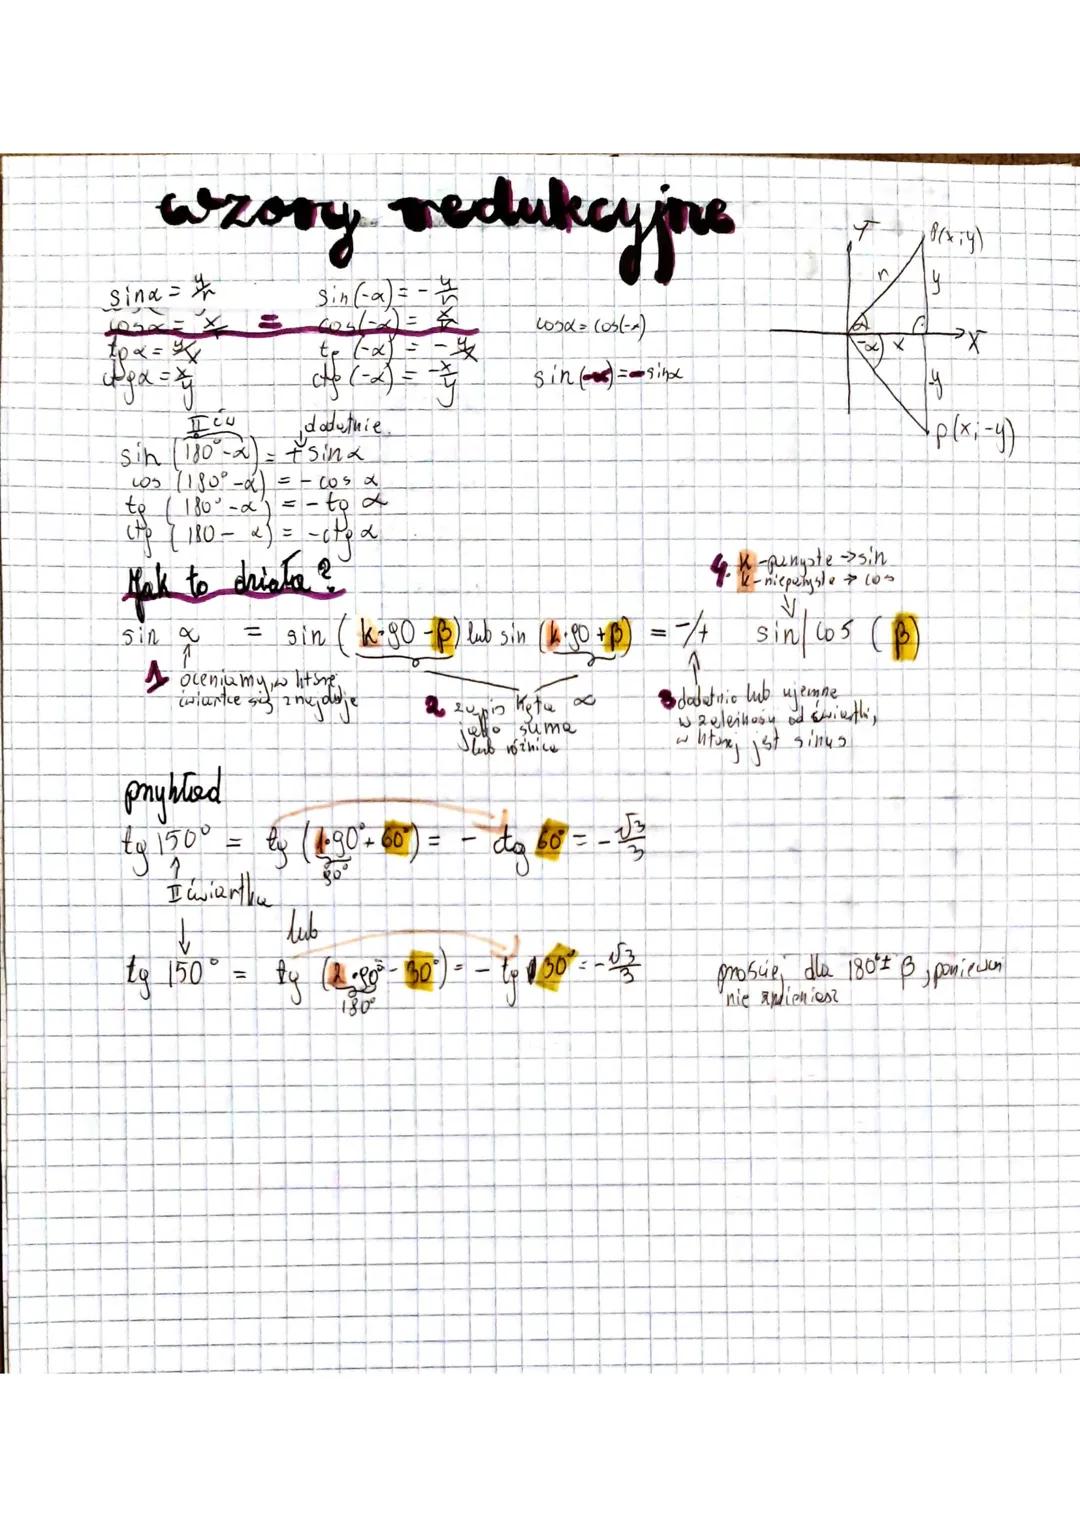 wzory redukcyjne
sinα = y/r sin(-α) = - y/r
cosα = x/r = cos(-α) = x/r cosα = cos(-α)
tgα = y/x tg(-α) = - y/x
ctgα = x/y ctg(-α) = -x/y sin(-α) = -sinα
Y P(x;y)
r y
α
-α x X
-y
P(x;-y)
II ćw dodatnie.
sin (180°-α) = + sinα
cos (180°-α) = - cos α
tg (180°-α) = - tg α
ctg (180-α) = -ctg α
Jak to działa?
4. k - parzyste → sin
k - nieparzyste → cos
sin α = sin (k·90 - β) lub sin (k·90 + β) = -/+ sin/cos (β)
1 oceniamy, w której
ćwiartce się znajduje
2 zapis kąta α
jako suma
lub różnica
3 dodatnie lub ujemne
w zależności od ćwiartki,
w której jest sinus
przykład
tg 150° = tg (1·90° + 60°) = - ctg 60° = - √3/3
90°
II ćwiartka
lub
tg 150° = tg (2·90° - 30°) = - tg 30° = - √3/3
180°
prościej dla 180° ± β, ponieważ
nie zmieniasz